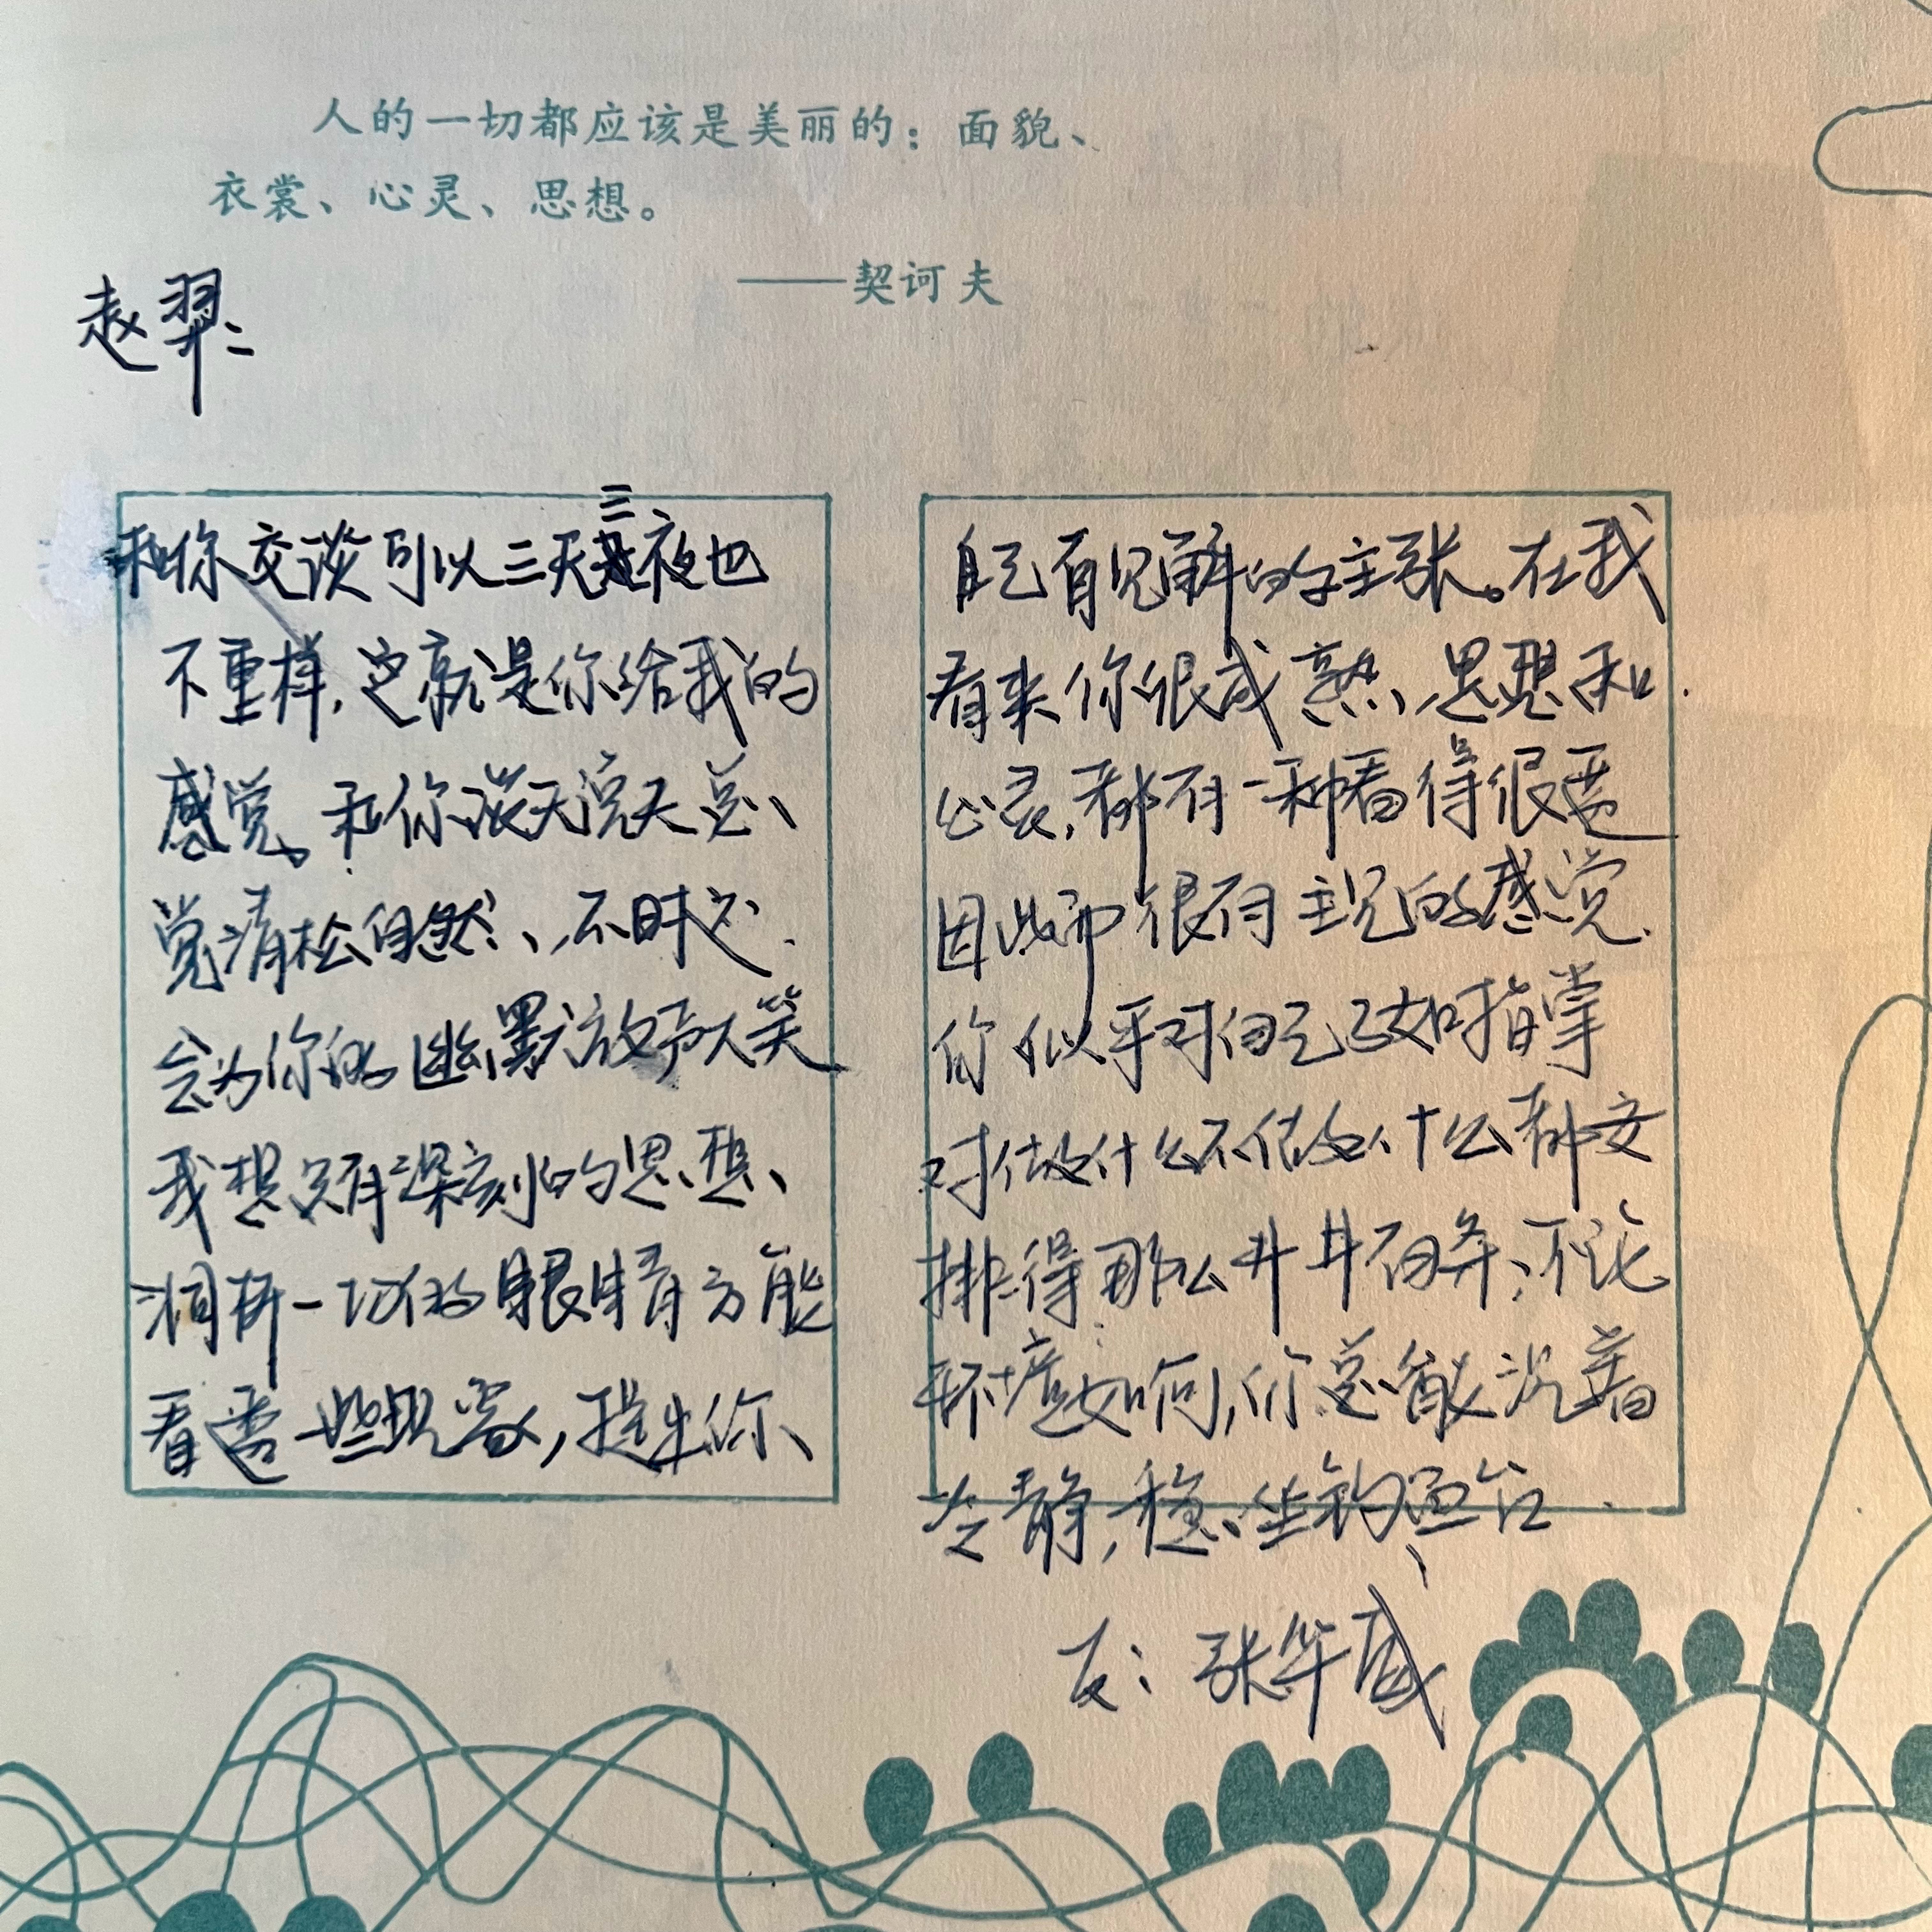 人的一切都应该是美丽的：面貌、
衣裳、心灵、思想。
——契诃夫
赵羿：
和你交谈可以三天三夜也
不重样，这就是你给我的
感觉。和你谈天说天总
觉清松自然、不时也
会为你的幽默放声大笑
我想只有深刻的思想、
洞析一切的眼睛方能
看透一些现象，提出你
自己有见解的主张。在我
看来你很成熟、思想和
心灵，都有一种看得很透
因此而很有主见的感觉.
你似乎对自己了如指掌
对做什么不做什么都安
排得那么井井有条，不论
环境如何，你总能沉着
冷静，稳坐钓鱼台
友：张华